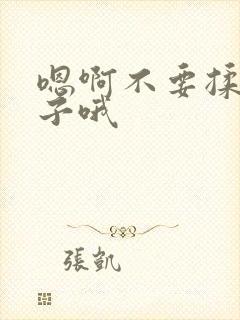 嗯啊不要揉
子哦
張凱